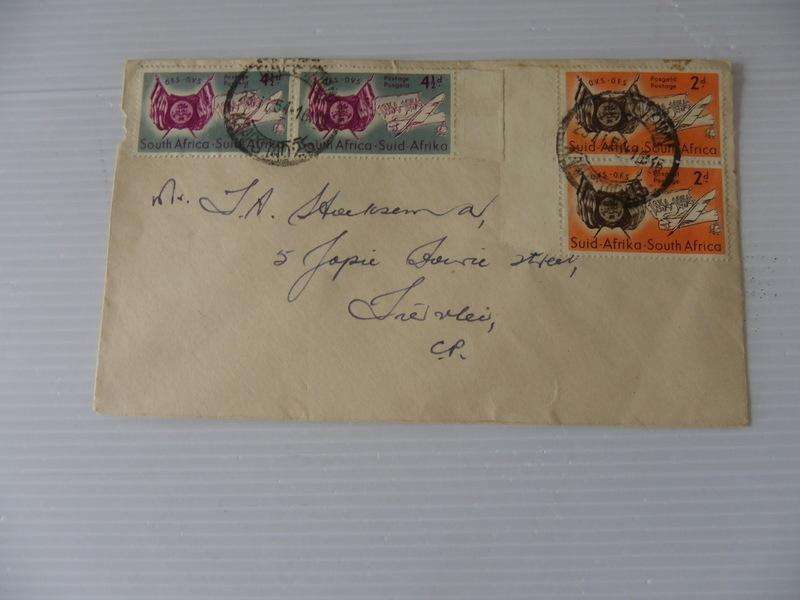 O.V.S - O.F.S
4½d
South Africa - Suid-Afrika
O.F.S - O.V.S
Postage
Posgeld
4½d
South Africa - Suid-Afrika
O.V.S - O.F.S
Posgeld
Postage
2d
Suid-Afrika - South Africa
O.F.S - O.V.S
Posgeld
Postage
2d
Suid-Afrika - South Africa
Mr. J. A. Hoeksema,
5 Jopie Fourie Street,
C.P.